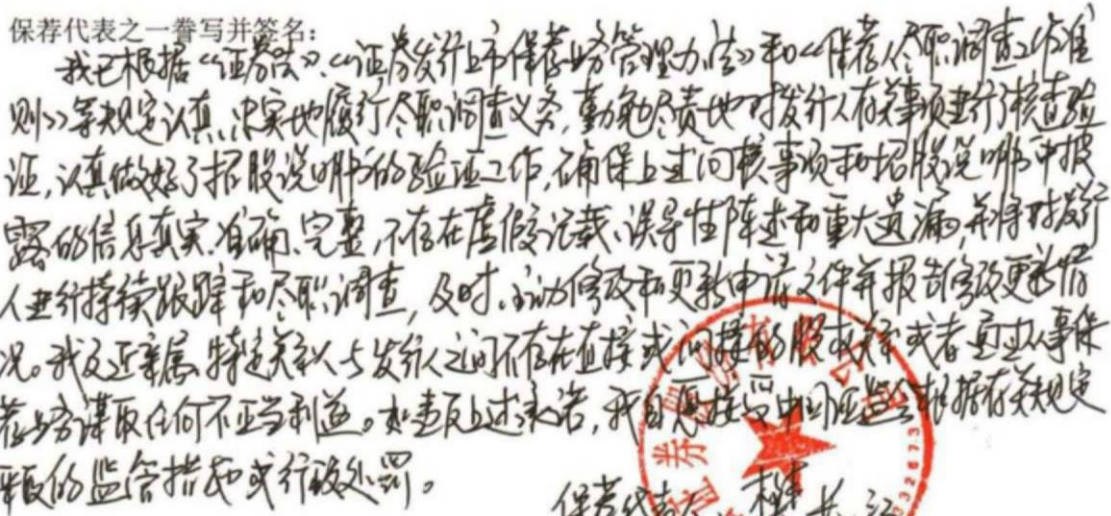 保荐代表之一誊写并签名:
我已根据《证券法》、《证券发行上市保荐业务管理办法》和《保荐人尽职调查工作准
则》等规定认真、忠实地履行尽职调查义务，勤勉尽责地对发行人有关事项进行了核查验
证，认真做好了招股说明书的验证工作，确保上述问核事项和招股说明书中披
露的信息真实、准确、完整，不存在虚假记载、误导性陈述和重大遗漏，并将对发行
人进行持续跟踪和尽职调查，及时、主动修改和更新申请文件并报告修改更新情
况。我及近亲属、特定关系人与发行人之间不存在直接或间接的股权关系或者通过从事保
荐业务谋取任何不正当利益。如违反上述承诺，我自愿接受中国证监会根据有关规定
采取的监管措施或行政处罚。
保荐代表人